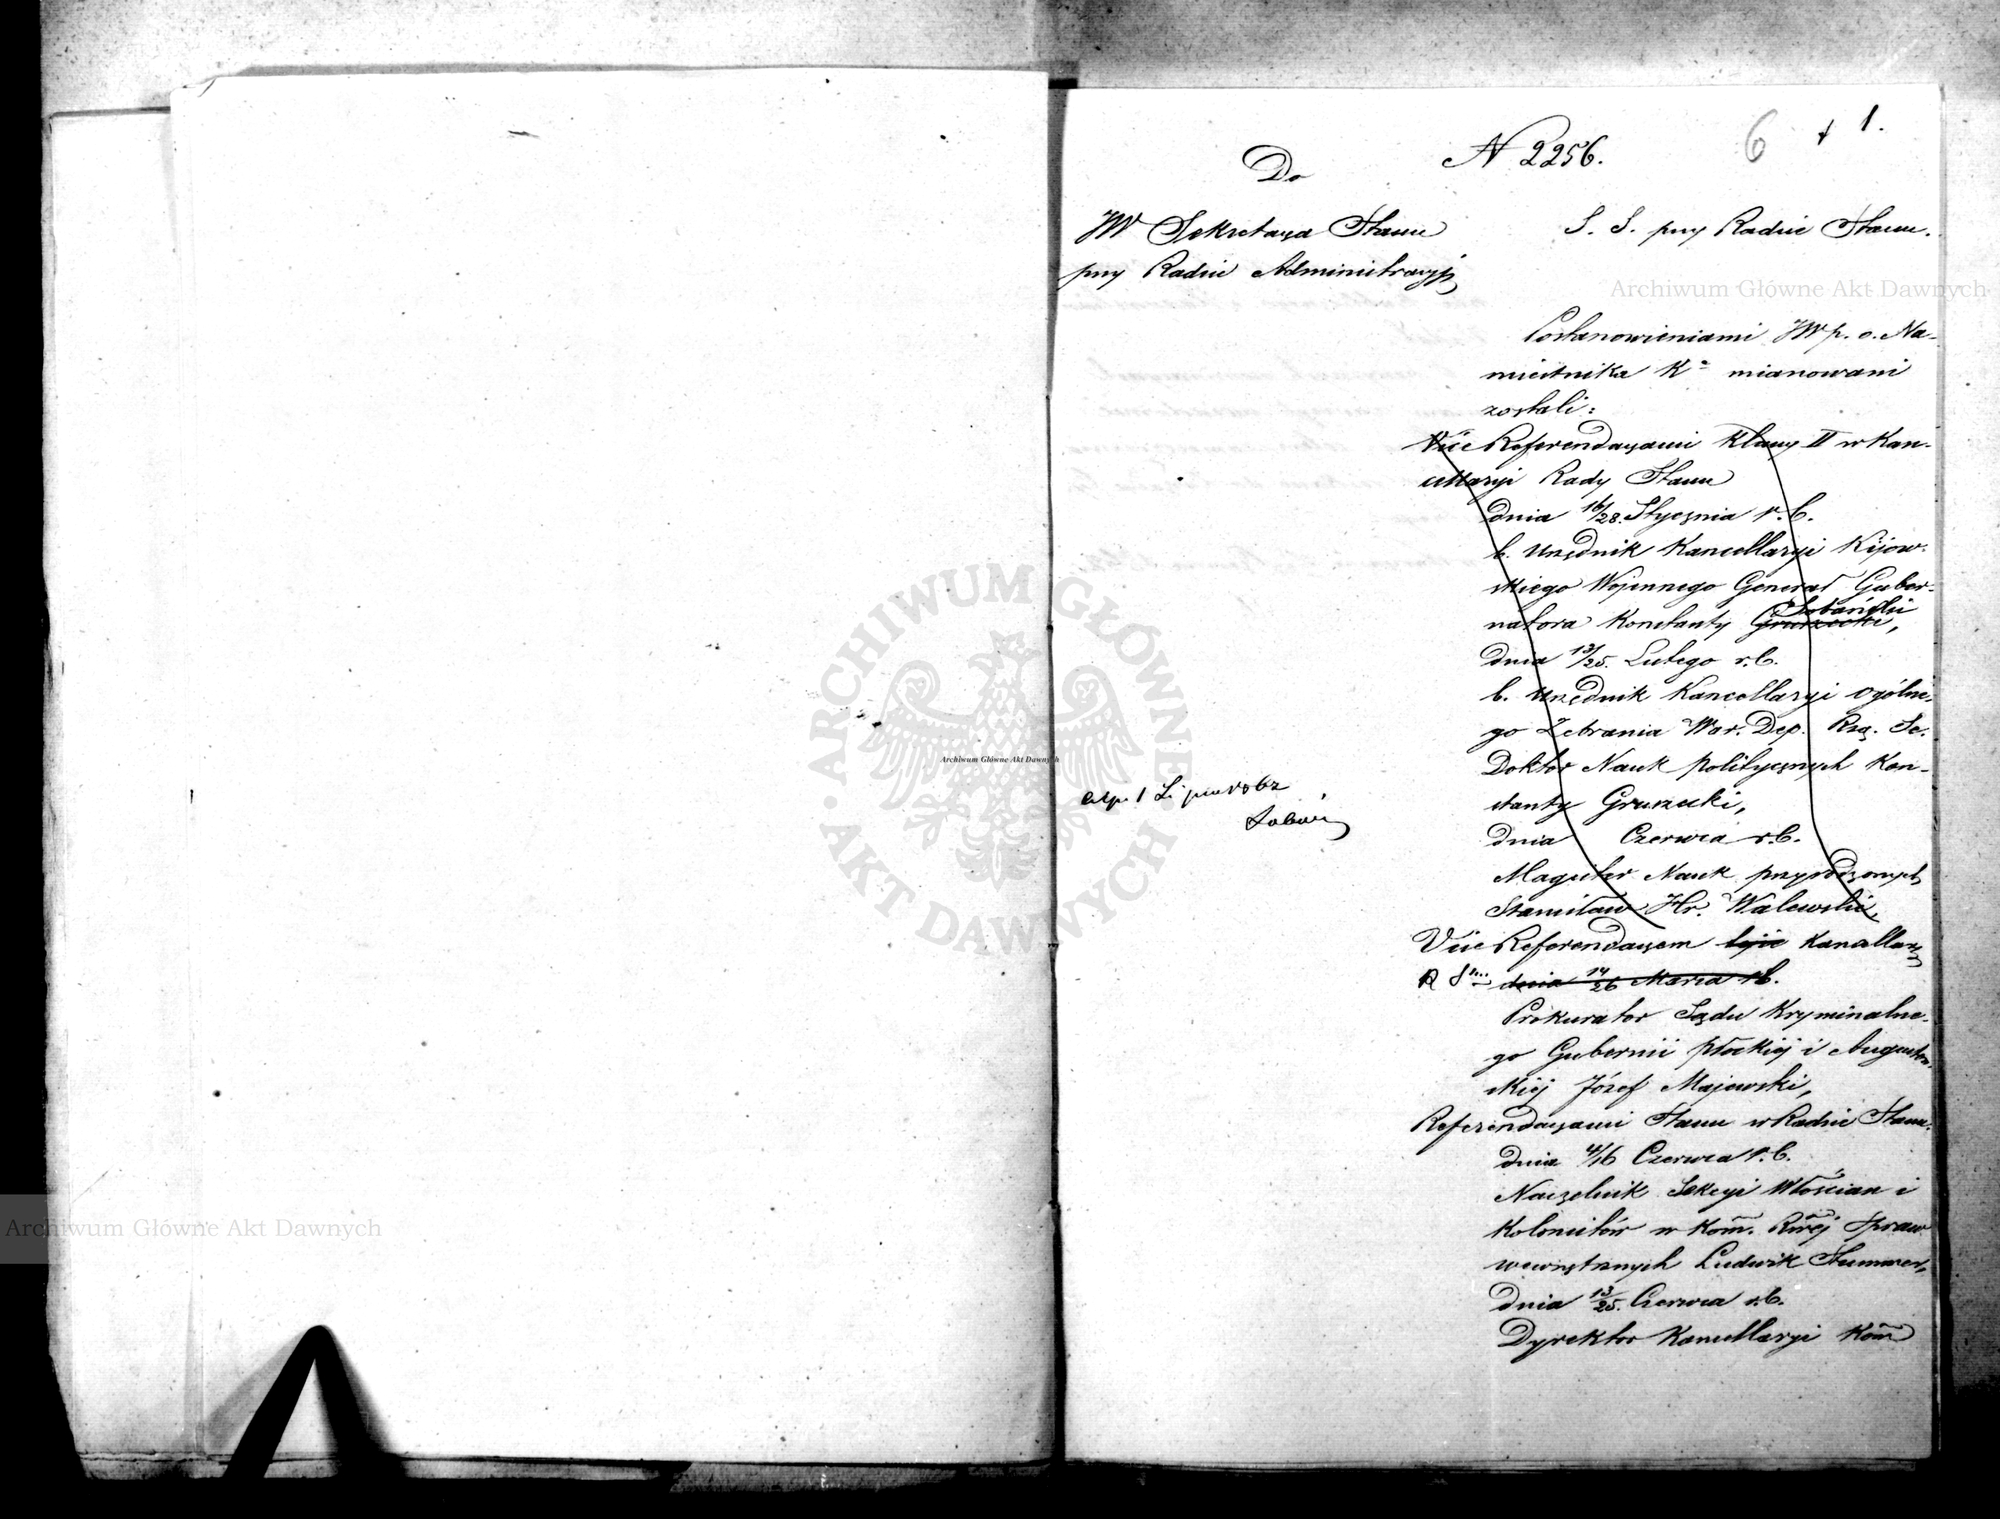 6 1.
N 2256.
Do
JW Sekretarza Stanu
przy Radzie Administracyj
S. S. przy Radzie Stanu.
Postanowieniami JW p. o. Na-
miestnika K mianowani
zostali:
Vice Referendarzami klassy II w Kan-
cellaryi Rady Stanu
dnia 16/28. Stycznia r. b.
b. Urzędnik Kancellaryi Kijow-
skiego Wojennego Generał Guber-
natora Konstanty Gruszecki,
dnia 13/25. Lutego r. b.
b. Urzędnik Kancellaryi ogólne-
go Zebrania War. Dep. Rzą. Se.
Doktor Nauk politycznych Kon-
stanty Gruszecki,
dnia Czerwca r. b.
Magister Nauk przyrodzonych
Stanisław Hr. Walewski,
Vice Referendarzem Kancellary
R S dnia 14/26 Marca r. b.
Prokurator Sądu Kryminalne-
go Gubernii płockiej i Augustow-
skiej Józef Majewski,
Referendarzami Stanu w Radzie Stanu.
dnia 4/16 Czerwca r. b.
Naczelnik Sekcyi Włościan i
Kolonistów w Kom. Rząej Spraw
wewnętrznych Ludwik Stummer,
dnia 13/25. Czerwca r. b.
Dyrektor Kancellaryi Kom
1 Lipca 1862
Archiwum Główne Akt Dawnych
ARCHIWUM GŁÓWNE
AKT DAWNYCH
Archiwum Główne Akt Dawnych
Archiwum Główne Akt Dawnych